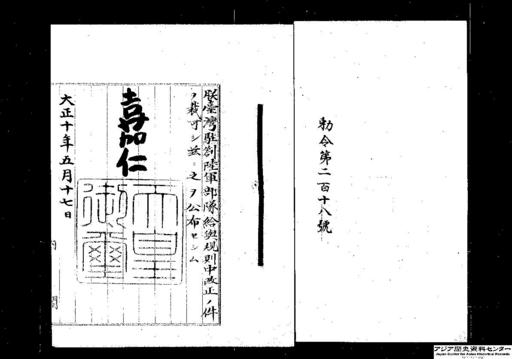 勅令第二百十八號
朕臺灣駐劄陸軍部隊給與規則中改正ノ件
ヲ裁可シ茲ニ之ヲ公布セシム
嘉仁
天皇御璽
大正十年五月十七日
内閣
アジア歴史資料センター
Japan Center for Asian Historical Records